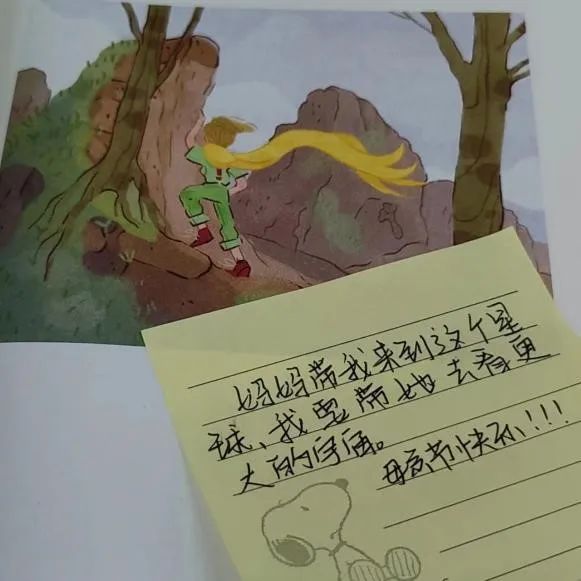 妈妈带我来到这个星
球、我要带她去看更
大的宇宙。
母亲节快乐!!!